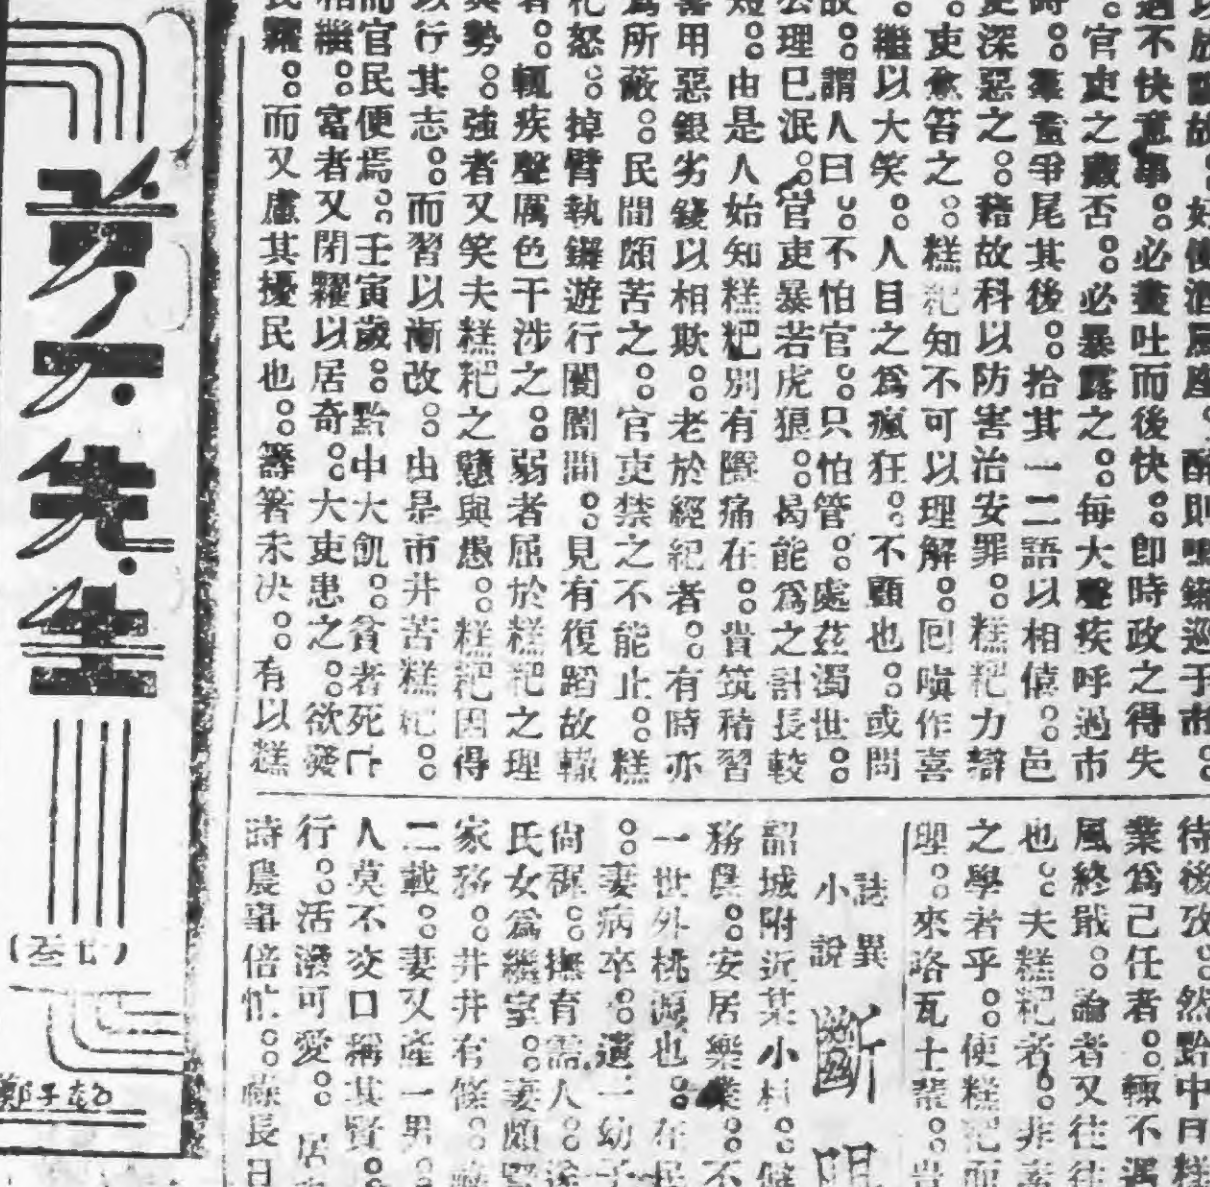 過不快意事。必盡吐而後快。卽時政之得失
。官吏之臧否。必暴露之。每大聲疾呼過市
時。羣童爭尾其後。拾其一二語以相傳。邑
吏深惡之。藉故科以防害治安罪。糕粑力辯
。吏焦笞之。糕粑知不可以理解。囘嗔作喜
。繼以大笑。人目之爲瘋狂。不顧也。或問
故。謂人曰。不怕官。只怕管。處茲濁世。
公理已泯。官吏暴若虎狼。曷能爲之計長較
短。由是人始知糕粑別有隱痛在。貴筑豬習
善用惡銀劣錢以相欺。老於經紀者。有時亦
爲所蔽。民間頗苦之。官吏禁之不能止。糕
粑怒。掉臂執鑼遊行闤闠間。見有復蹈故轍
者。輒疾聲厲色干涉之。弱者屈於糕粑之理
與勢。強者又笑夫糕粑之戇與愚。糕粑因得
以行其志。而習以漸改。由是市井苦糕粑。
而官民便焉。壬寅歲。黔中大飢。貧者死亡
相繼。富者又閉糶以居奇。大吏患之。欲發
民糶。而又慮其擾民也。籌箸未決。有以糕
待後攷。然黔中日糕
業爲己任者。輒不遇
風終戢。論者又往往
也。夫糕粑者。非
之學者乎。使糕粑而
理。來路瓦士輩。豈
誌異
小說
斷
韶城附近某小村。
務農。安居樂業。不
一世外桃源也。在
。妻病卒。遺一幼子
尙
撫育需人。
氏女爲繼室。妻頗賢
家務。井井有條。
二載。妻又產一男。
人莫不交口稱其賢。
行。活潑可愛。居
時農事倍忙。長日
先生
(叁廿)